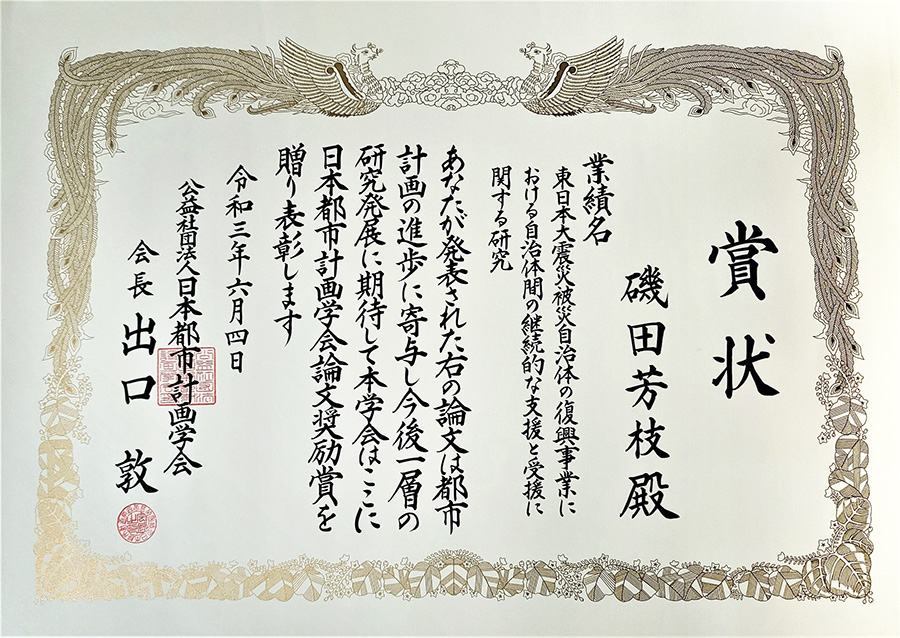 賞状
磯田芳枝殿
業績名
東日本大震災被災自治体の復興事業に
おける自治体間の継続的な支援と受援に
関する研究
あなたが発表された右の論文は都市
計画の進歩に寄与し今後一層の
研究発展に期待して本学会はここに
日本都市計画学会論文奨励賞を
贈り表彰します
令和三年六月四日
公益社団法人日本都市計画学会
会長 出口 敦